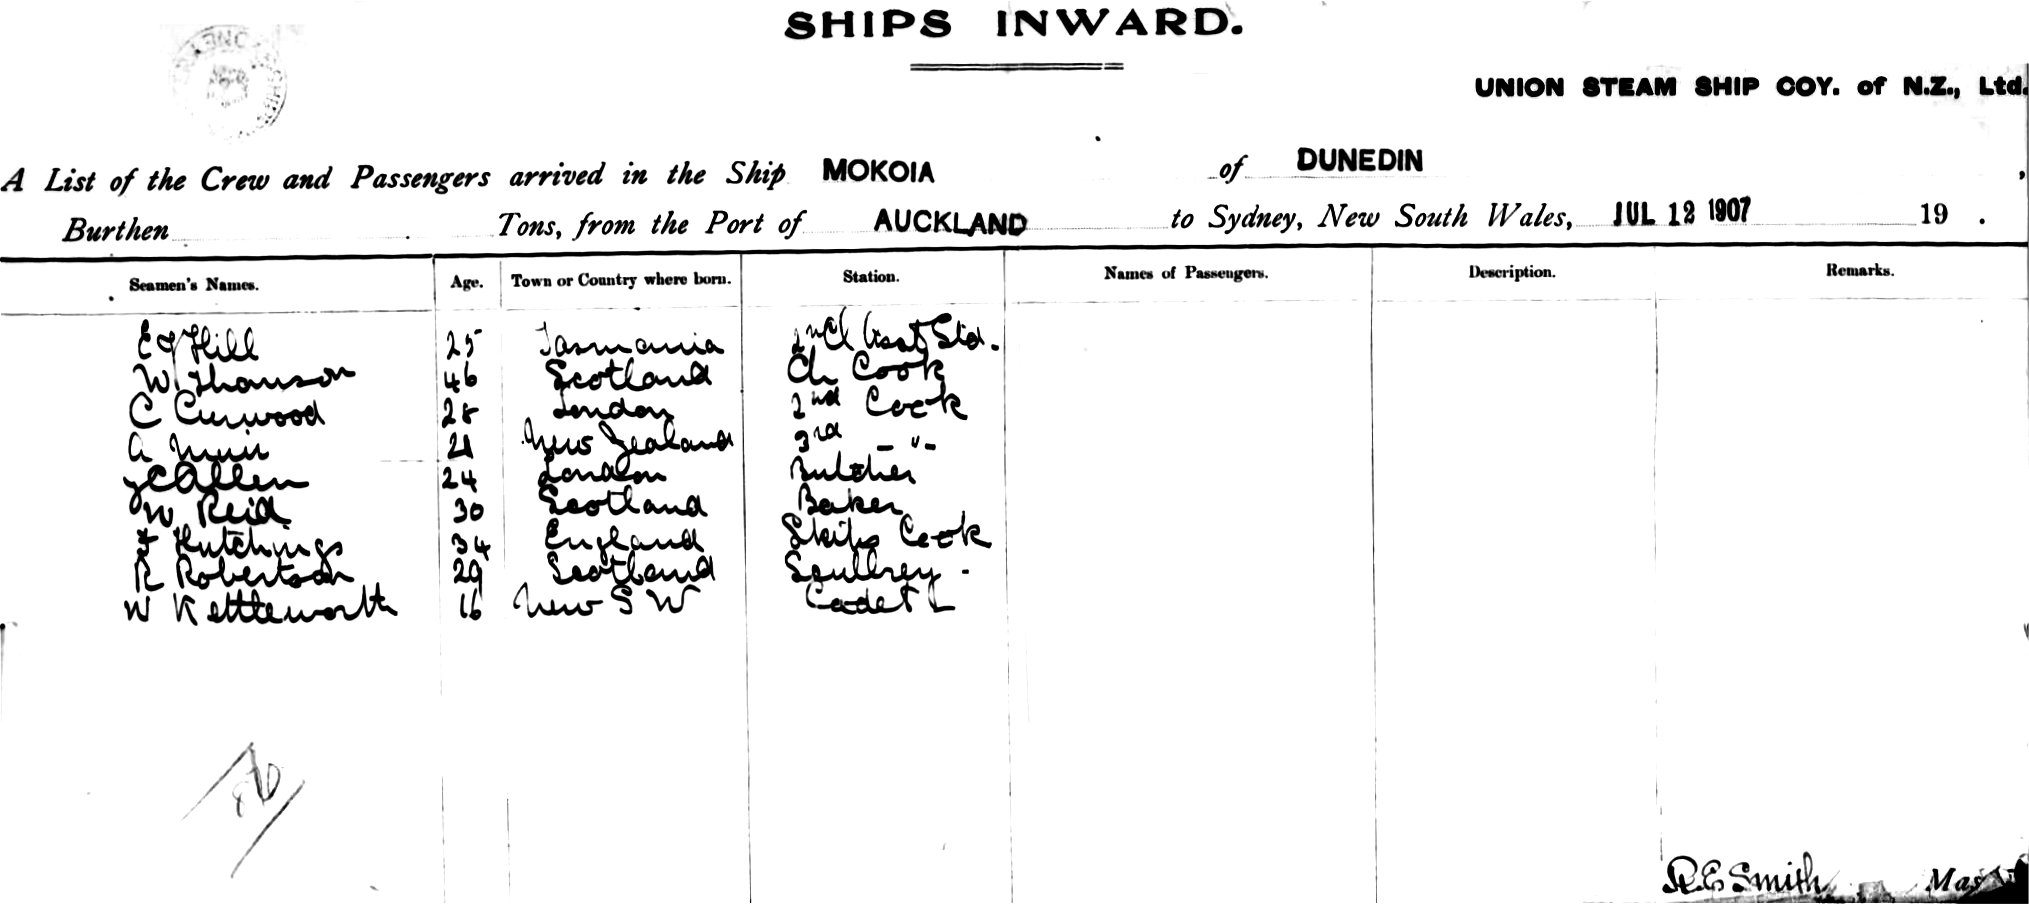 SHIPS INWARD.
UNION STEAM SHIP COY. of N.Z., Ltd.
A List of the Crew and Passengers arrived in the Ship MOKOIA of DUNEDIN,
Burthen Tons, from the Port of AUCKLAND to Sydney, New South Wales, JUL 12 1907 19 .
Seamen's Names. Age. Town or Country where born. Station. Names of Passengers. Description. Remarks.
E J Hill 25 Tasmania 2nd Std.
W Thomson 46 Scotland Ch Cook
C Curwood 28 London 2nd Cook
A Muir 21 New Zealand 3rd - " -
C Allen 24 London Butcher
W Reid 30 Scotland Baker
F Hutchings 34 England Ships Cook
R Robertson 29 Scotland Scullrey -
W Kettleworth 16 New S W Cadet
R.E. Smith